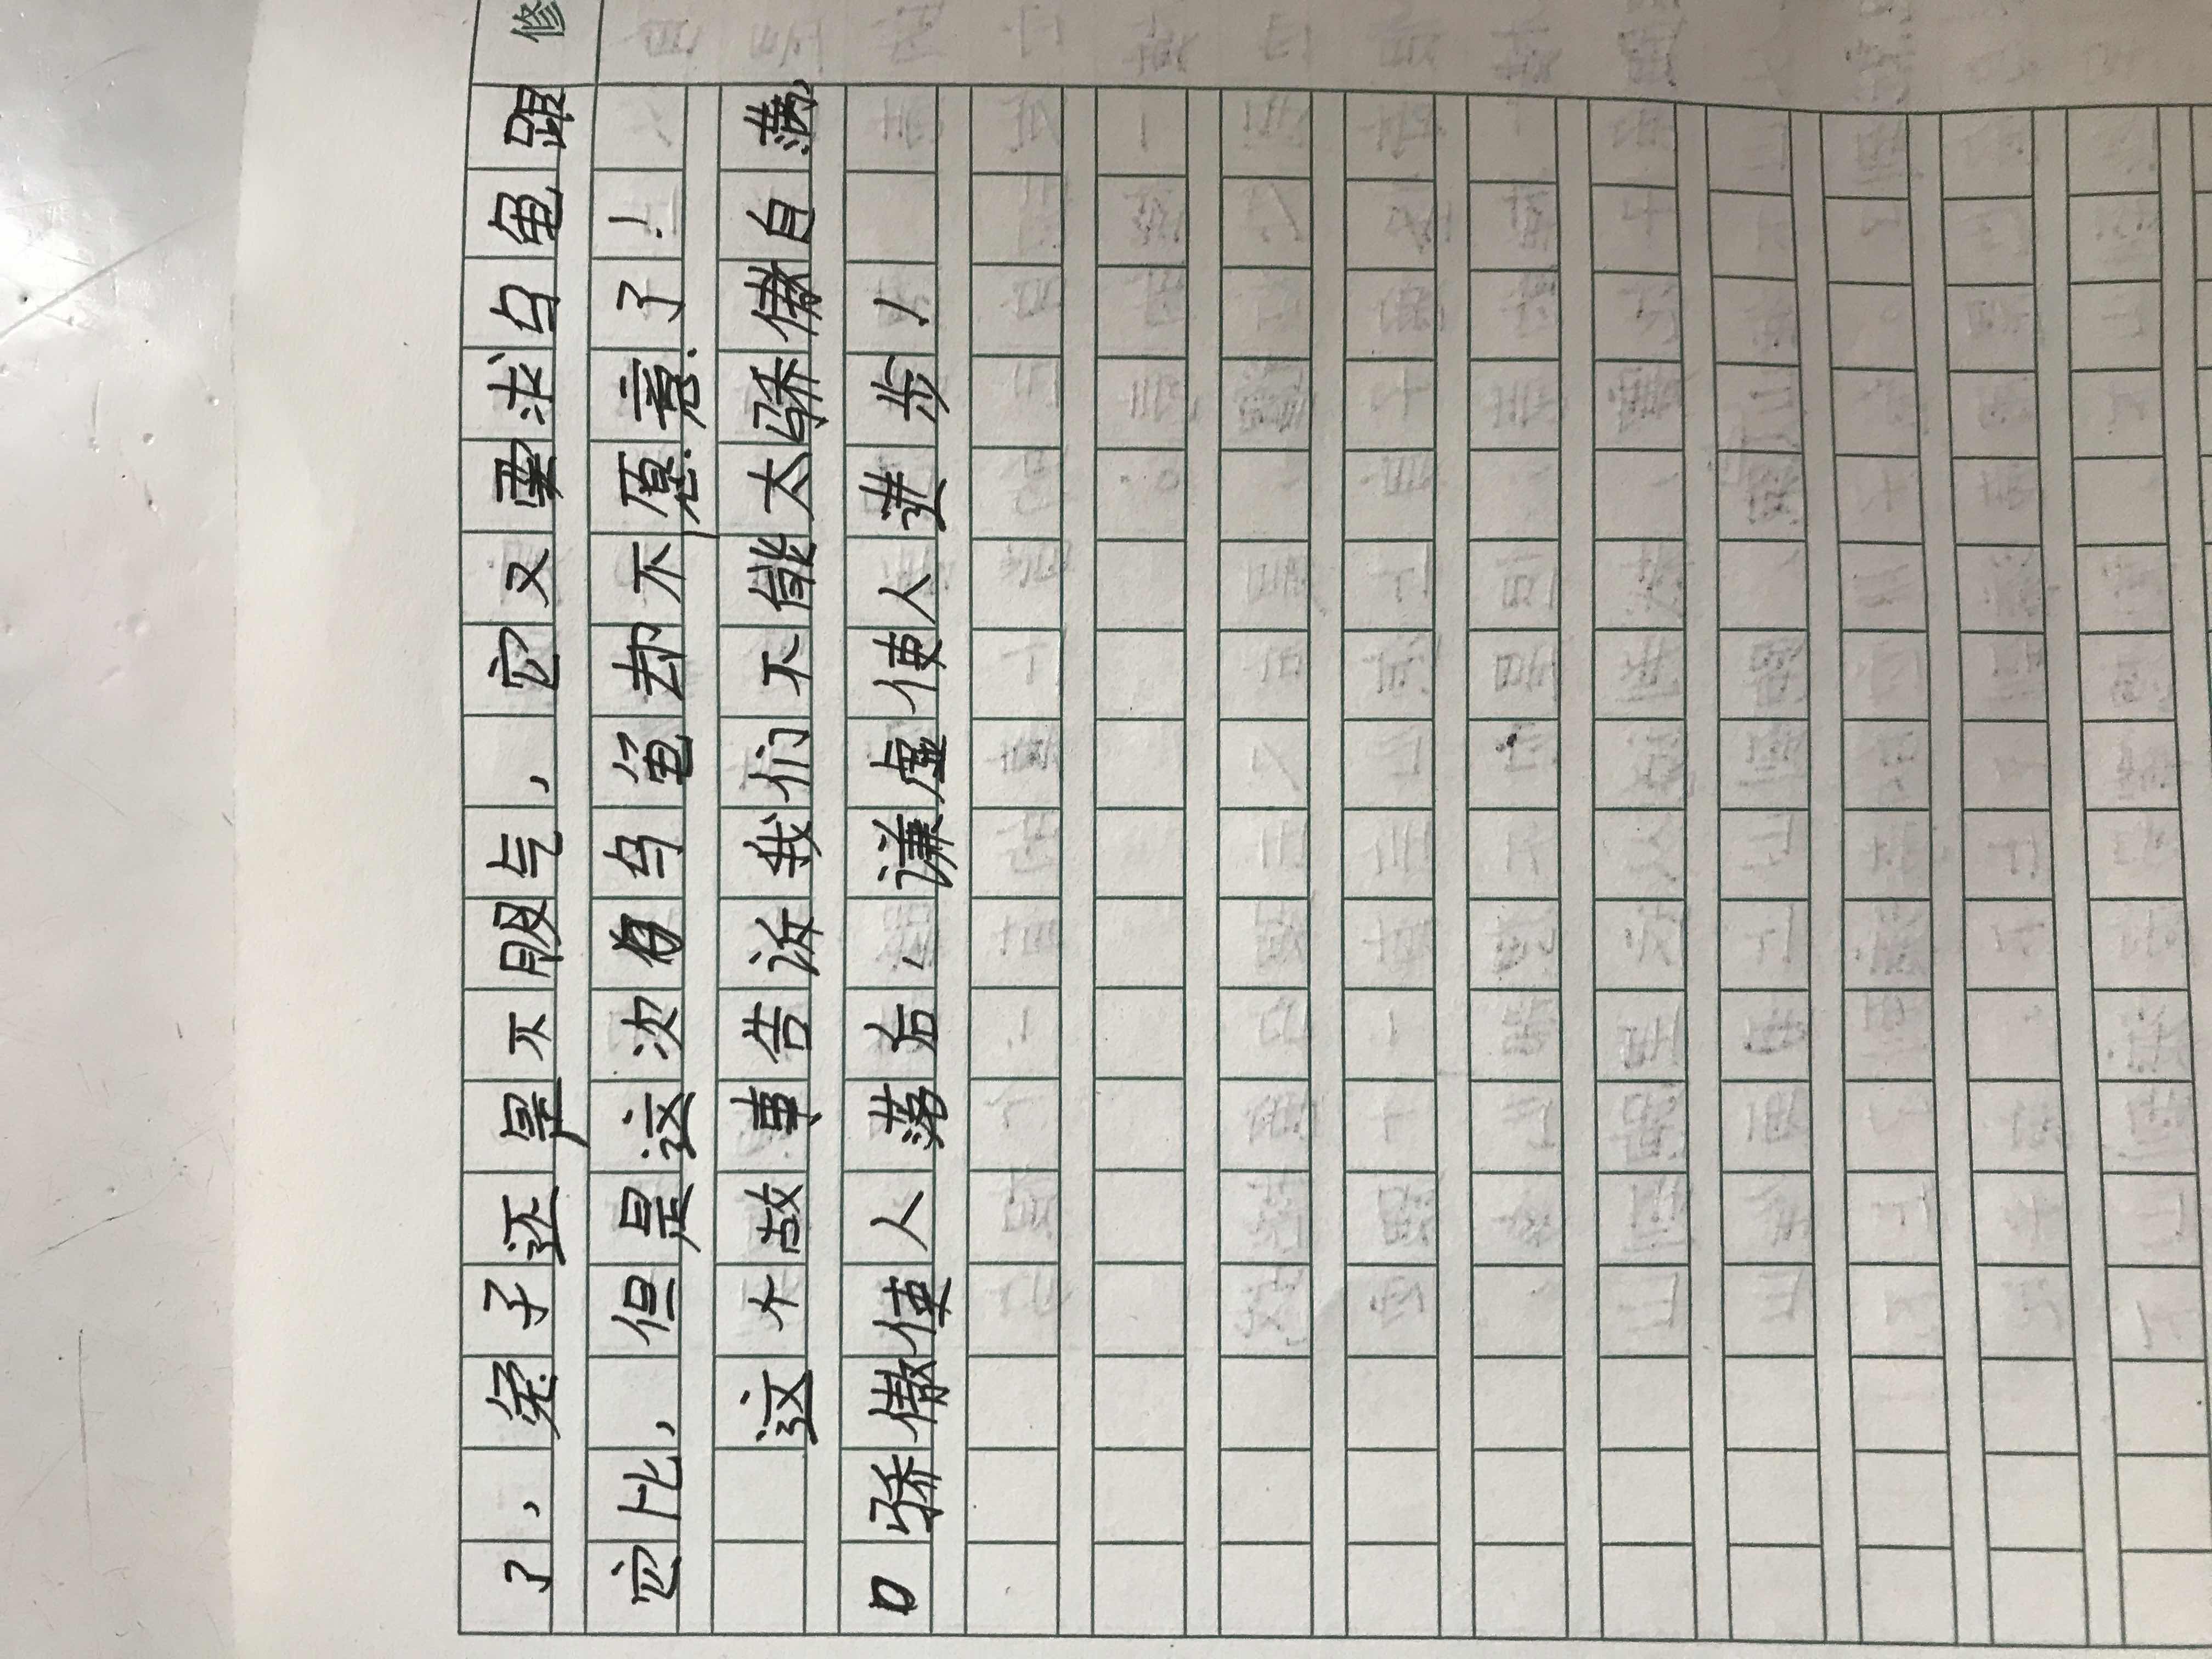 修
了，兔子还是不服气，它又要求乌龟跟
它比，但是这次乌龟却不愿意了！
这个故事告诉我们不能太骄傲自满，
骄傲使人落后，谦虚使人进步！